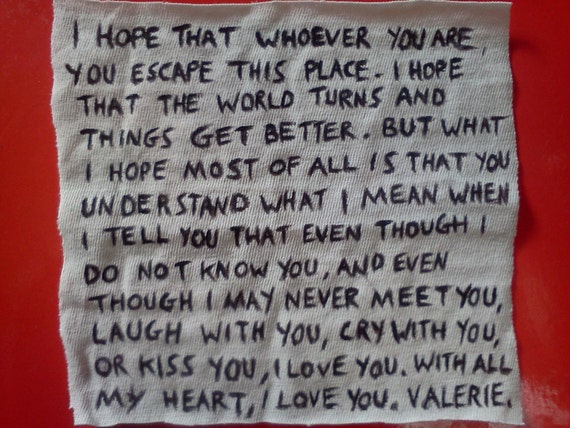 I HOPE THAT WHOEVER YOU ARE,
YOU ESCAPE THIS PLACE. I HOPE
THAT THE WORLD TURNS AND
THINGS GET BETTER. BUT WHAT
I HOPE MOST OF ALL IS THAT YOU
UNDERSTAND WHAT I MEAN WHEN
I TELL YOU THAT EVEN THOUGH I
DO NOT KNOW YOU, AND EVEN
THOUGH I MAY NEVER MEET YOU,
LAUGH WITH YOU, CRY WITH YOU,
OR KISS YOU, I LOVE YOU. WITH ALL
MY HEART, I LOVE YOU. VALERIE.